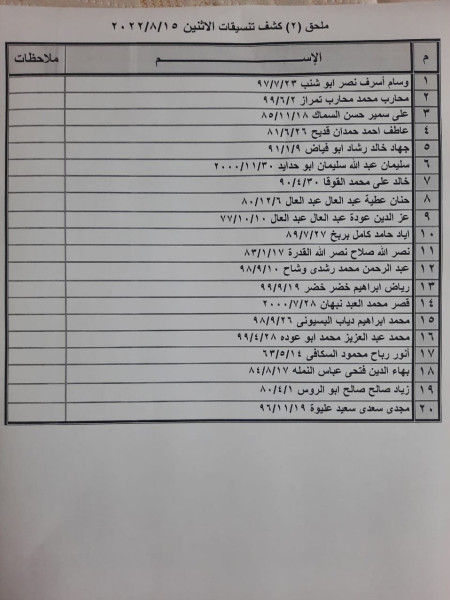 ملحق (٢) كشف تنسيقات الاثنين ٢٠٢٢/٨/١٥
م الإســـم ملاحظات
١ وسام أسرف نصر ابو شنب ٩٧/٧/٢٣
٢ محارب محمد محارب تمراز ٩٩/٦/٢
٣ على سمير حسن السماك ٨٥/١١/١٨
٤ عاطف احمد حمدان قديح ٨١/٦/٢٦
٥ جهاد خالد رشاد ابو فياض ٩١/١/٩
٦ سليمان عبد الله سليمان ابو حدايد ٢٠٠٠/١١/٣٠
٧ خالد على محمد القوقا ٩٠/٤/٣٠
٨ حنان عطية عبد العال عبد العال ٨٠/١٢/٦
٩ عز الدين عودة عبد العال عبد العال ٧٧/١٠/١٠
١٠ اياد حامد كامل بربخ ٨٩/٧/٢٧
١١ نصر الله صلاح نصر الله القدرة ٨٣/١/١٧
١٢ عبد الرحمن محمد رشدى وشاح ٩٨/٩/١٠
١٣ رياض ابراهيم خضر خضر ٩٩/٩/١٩
١٤ قصر محمد العبد نبهان ٢٠٠٠/٧/٢٨
١٥ محمد ابراهيم دياب البسيونى ٩٨/٩/٢٦
١٦ محمد عبد العزيز محمد ابو عوده ٩٩/٤/٢٨
١٧ أنور رباح محمود السكافى ٦٣/٥/١٤
١٨ بهاء الدين فتحى عباس النمله ٨٤/٨/١٧
١٩ زياد صالح صالح ابو الروس ٨٠/٤/١
٢٠ مجدى سعدى سعيد عليوة ٩٦/١١/١٩